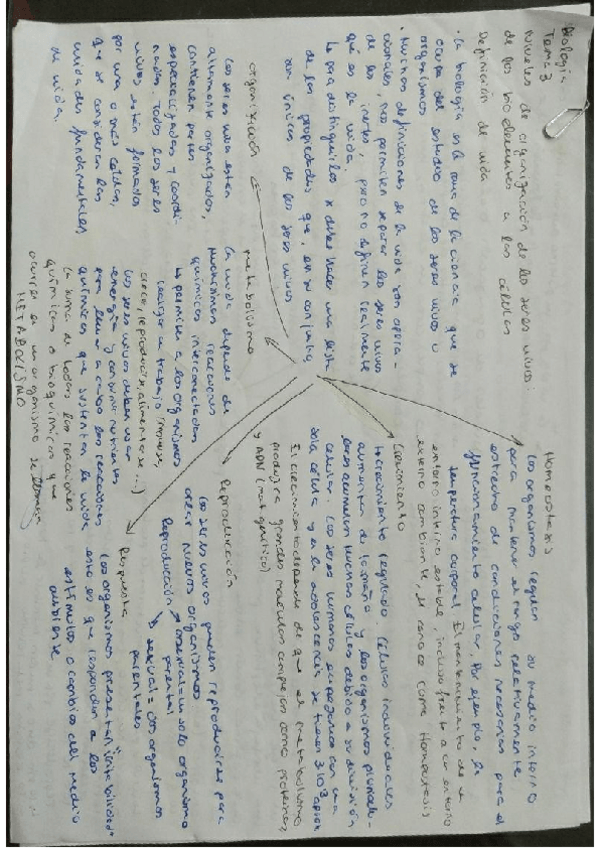 Biología
Tema 3
Niveles de organización de los seres vivos:
de los bioelementos a las células
Definición de vida
· La biología es la rama de la ciencia que se
ocupa del estudio de los seres vivos u
organismos
· Muchas definiciones de la vida son opera-
cionales, nos permiten separar los seres vivos
de los inertes, pero no definen realmente
qué es la vida
para distinguirlos se debe hacer una lista
de las propiedades que, en su conjunto,
son únicas de los seres vivos
organización
Los seres vivos están
altamente organizados,
contienen partes
especializadas y coordi-
nadas. Todos los seres
vivos están formados
por una o más células,
que se consideran las
unidades fundamentales
de vida.
metabolismo
La vida depende de
muchísimas reacciones
químicas interconectadas
Le permite a los organismos
realizar el trabajo (moverse,
crecer, reproducirse, alimentarse...)
Los seres vivos deben usar
energía y consumir nutrientes
para llevar a cabo las reacciones
químicas que sustentan la vida
La suma de todas las reacciones
químicas o bioquímicas que
ocurren en un organismo se llama
METABOLISMO
Homeostasis
Los organismos regulan su medio interno
para mantener el rango relativamente
estrecho de condiciones necesarias para el
funcionamiento celular. Por ejemplo, la
temperatura corporal. El mantenimiento de un
entorno interno estable, incluso frente a un entorno
externo cambiante, se conoce como Homeostasis
Crecimiento
Crecimiento regulado. Células individuales
aumentan de tamaño y los organismos pluricelu-
lares acumulan muchas células debido a su división
celular. Los seres humanos empezamos con una
sola célula y en la adolescencia se tienen
El crecimiento depende de que el metabolismo
produzca grandes moléculas complejas como proteínas
y ADN (mat. genético)
Reproducción
Los seres vivos pueden reproducirse para
crear nuevos organismos
Reproducción asexual = un solo organismo
parental
sexual = dos organismos
parentales
Respuesta
Los organismos presentan "irritabilidad"
esto es que responden a los
estímulos o cambios del medio
ambiente